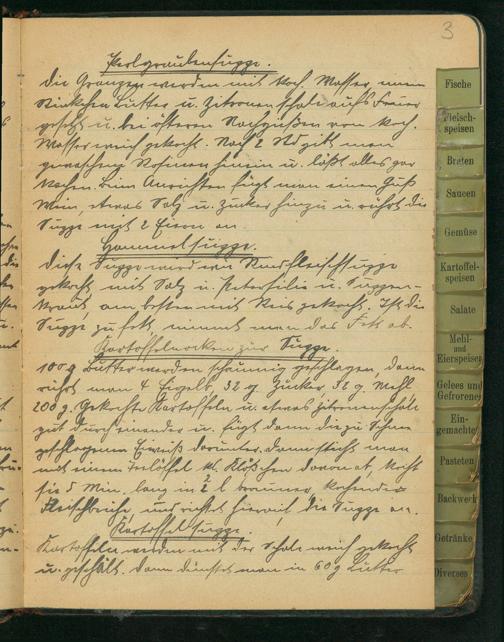 3
Perlgraubensuppe.
Die Graupen werden mit koch. Wasser, einem
Stückchen Butter u. Zitronenschale aufs Feuer
gesetzt u. bei öfteren Nachgießen von koch.
Wasser weich gekocht. Nach 2 Std gibt man
gewaschene Rosinen hinein u. läßt alles gar
kochen. Beim Anrichten fügt man einen Guß
Wein, etwas Salz u. Zucker hinzu u. rührt die
Suppe mit 2 Eiern an.
Hammelsuppe.
Diese Suppe wird wie Rindfleischsuppe
gekocht mit Salz u. Petersilie u. Suppen-
kraut, am besten mit Reis gekocht. Ist die
Suppe zu fett, nimmt man das Fett ab.
Kartoffelnocken zur Suppe.
100 g Butter werden schaumig geschlagen, dann
rührt man 4 Eigelb, 32 g Zucker 32 g Mehl
200 g. gekochte Kartoffeln u. etwas Zitronenschale
gut durcheinander u. fügt dann die zu Schnee
geschlagenen Eiweiß darunter. Dann sticht man
mit einem Teelöffel kl. Klößchen davon ab, kocht
sie 5 Min. lang in 2 l brauner, kochender
Fleischbrühe und richtet hierauf die Suppe an.
Kartoffelsuppe.
Kartoffeln werden mit der Schale weich gekocht
u. geschält. Dann dünstet man in 60 g Butter
Fische
Fleisch-
speisen
Braten
Saucen
Gemüse
Kartoffel-
speisen
Salate
Mehl-
und
Eierspeisen
Gelees und
Gefrorene
Ein-
gemachte
Pasteten
Backwerk
Getränke
Diverses